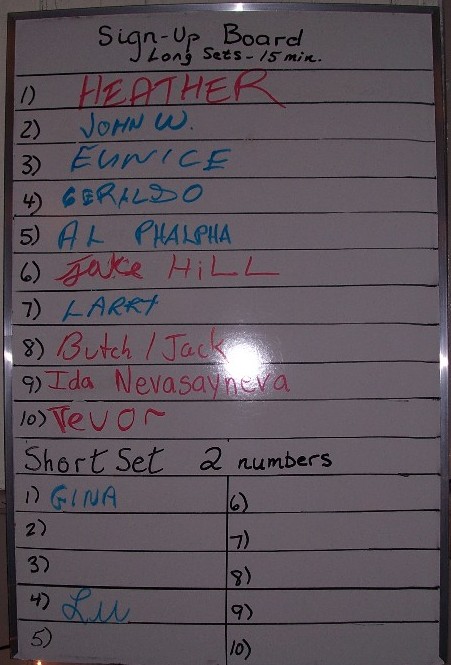 Sign-Up Board
Long Sets - 15 min.
1) HEATHER
2) JOHN W.
3) EUNICE
4) GERALDO
5) AL PHALPHA
6) Jake HiLL
7) LARRY
8) Butch / Jack
9) Ida Nevasayneva
10) Tevor
Short Set 2 numbers
1) GINA
2)
3)
4) Lu
5)
6)
7)
8)
9)
10)